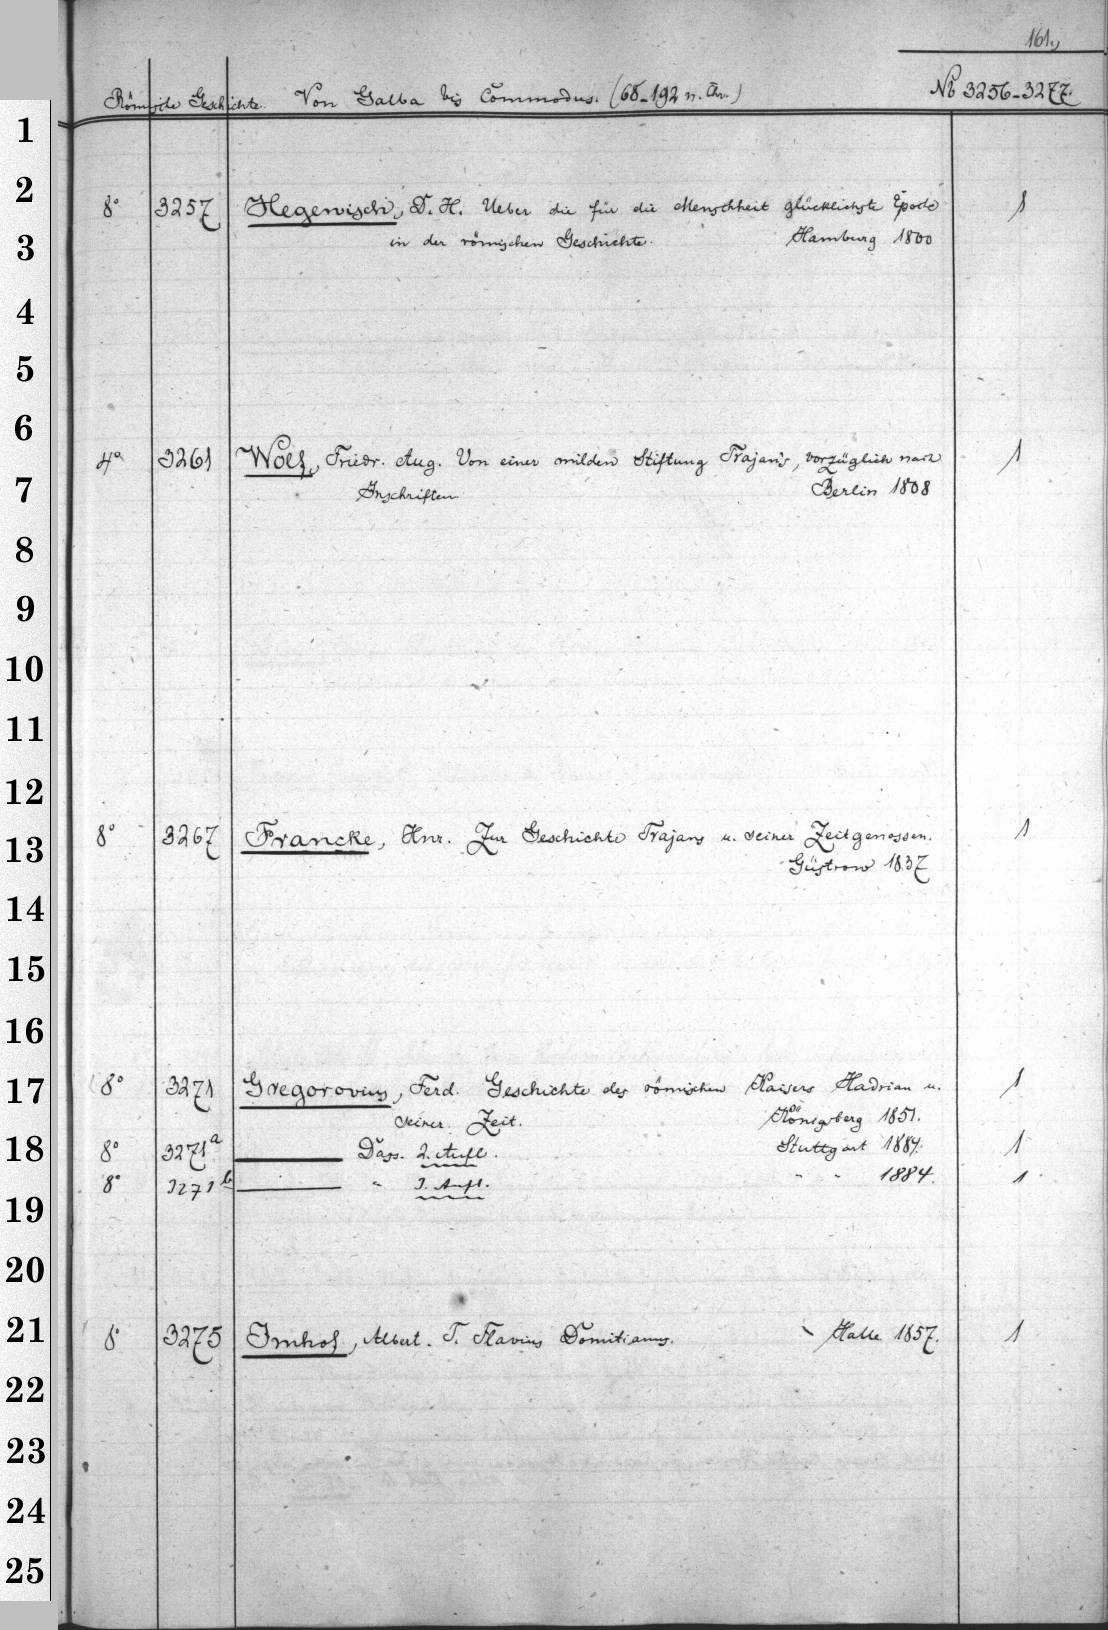 161.
Römische Geschichte. Von Galba bis Commodus. (68-192 n. Chr.) No 3256-3277.
1
2
8° 3257 Hegewisch, D. H. Ueber die für die Menschheit glücklichste Epoche 1
3 in der römischen Geschichte. Hamburg 1800
4
5
6
4° 3261 Wolf, Friedr. Aug. Von einer milden Stiftung Trajan's, vorzüglich nach 1
7 Inschriften Berlin 1808
8
9
10
11
12
8° 3267 Francke, Hnr. Zur Geschichte Trajans u. seiner Zeitgenossen. 1
13 Güstrow 1837
14
15
16
17 8° 3271 Gregorovius, Ferd. Geschichte des römischen Kaisers Hadrian u. 1
seiner Zeit. Königsberg 1851.
18 8° 3271a Dass. 2. Aufl. Stuttgart 1884. 1
8° 3271b " 3. Aufl. " " 1884. 1
19
20
21 8° 3275 Imhof, Albert. T. Flavius Domitianus. Halle 1857. 1
22
23
24
25